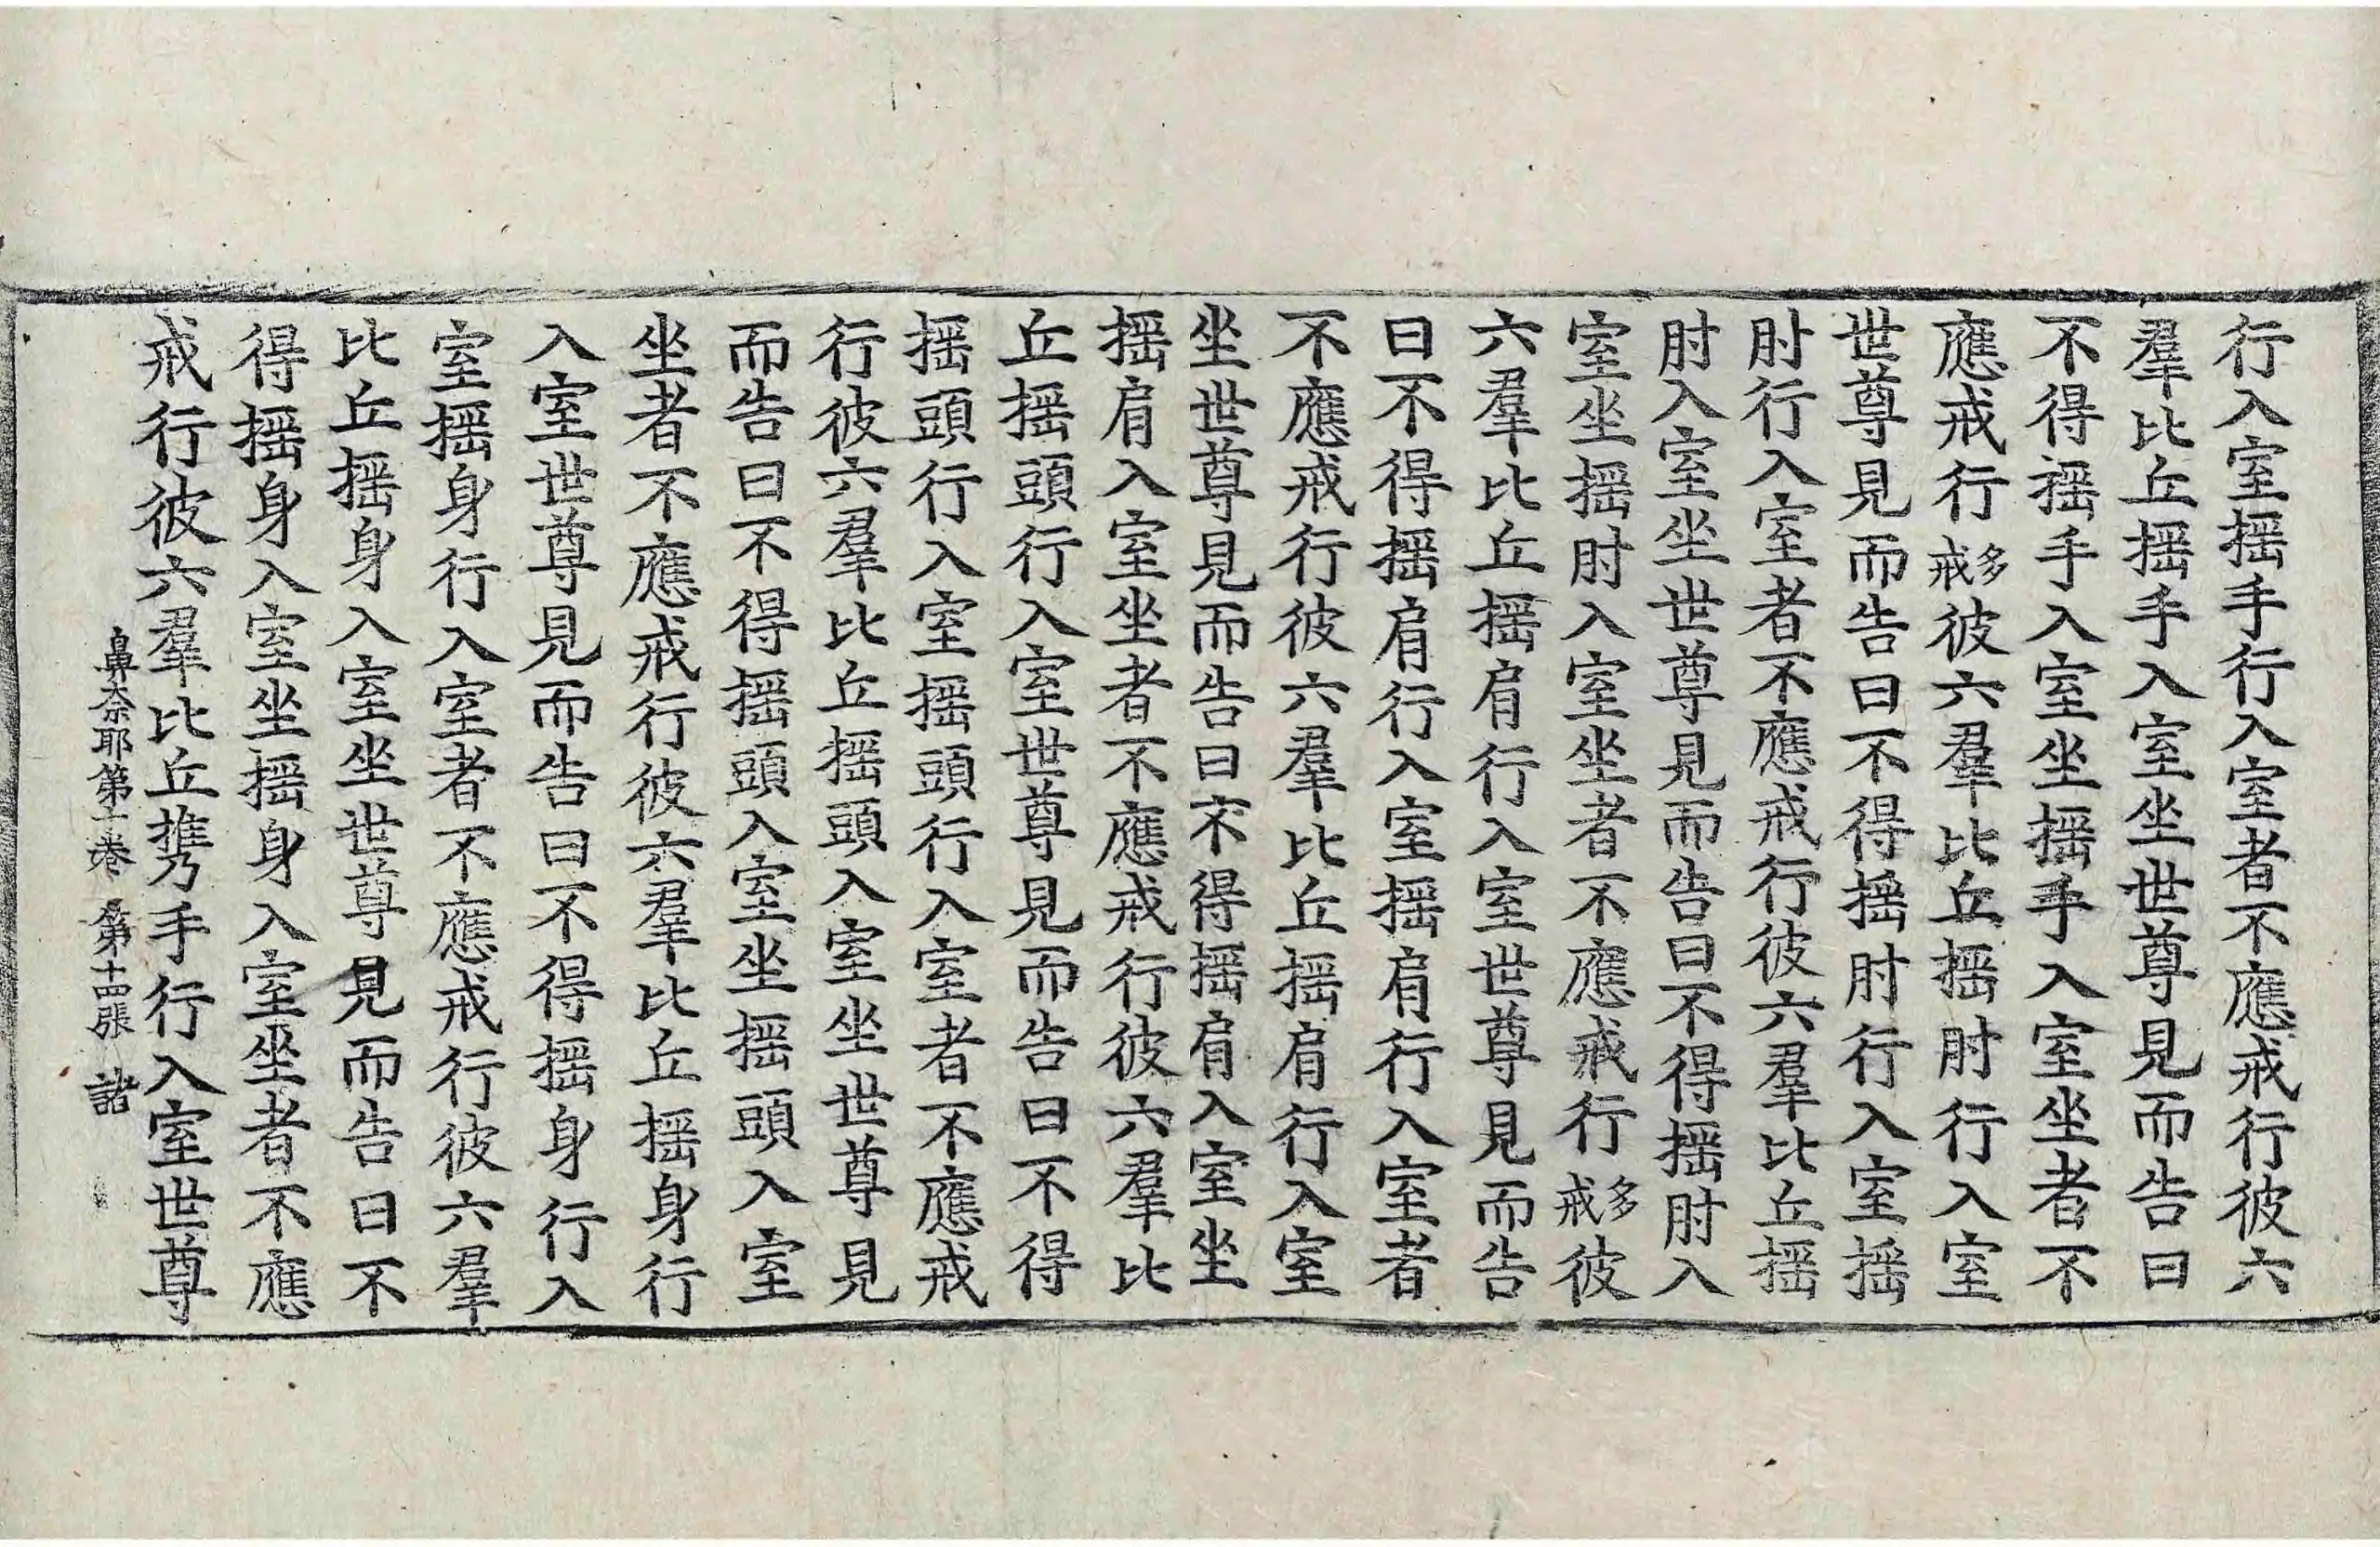 行入室揺手行入室者不應戒行彼六
羣比丘揺手入室坐世尊見而告曰
不得揺手入室坐揺手入室坐者不
應戒行多戒彼六羣比丘揺肘行入室
世尊見而告曰不得揺肘行入室揺
肘行入室者不應戒行彼六羣比丘揺
肘入室坐世尊見而告曰不得揺肘入
室坐揺肘入室坐者不應戒行多戒彼
六羣比丘揺肩行入室世尊見而告
曰不得揺肩行入室揺肩行入室者
不應戒行彼六羣比丘揺肩行入室
坐世尊見而告曰不得揺肩入室坐
揺肩入室坐者不應戒行彼六羣比
丘揺頭行入室世尊見而告曰不得
揺頭行入室揺頭行入室者不應戒
行彼六羣比丘揺頭入室坐世尊見
而告曰不得揺頭入室坐揺頭入室
坐者不應戒行彼六羣比丘揺身行
入室世尊見而告曰不得揺身行入
室揺身行入室者不應戒行彼六羣
比丘揺身入室坐世尊見而告曰不
得揺身入室坐揺身入室坐者不應
戒行彼六羣比丘攜手行入室世尊
鼻奈耶第十卷 第十四張 諸